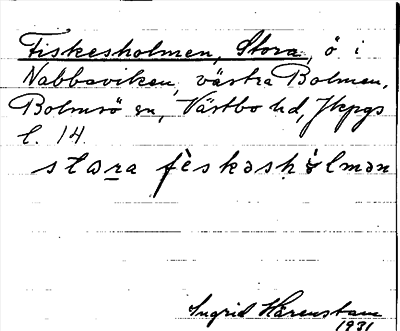 Fiskesholmen, Stora, ö i
Nabbaviken, västra Bolmen,
Bolmsö sn, Västbo hd, Jkpgs
l. 14.
stora fèskəsh ò lmən
Ingrid Härenstam
1931